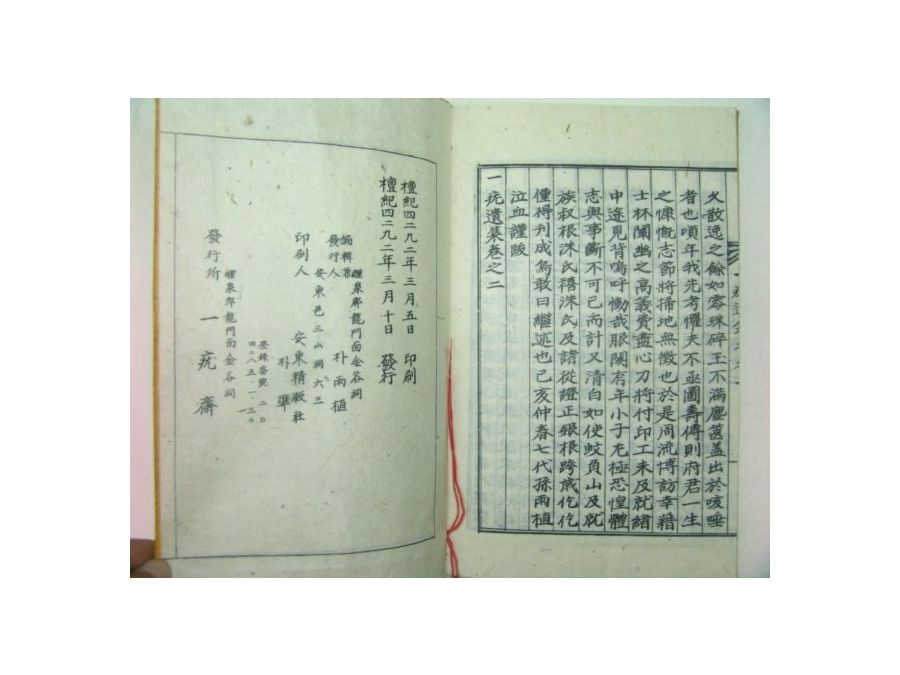 久散逸之餘如零珠碎玉不滿塵篋盖出於咳唾
者也頃年我先考懼夫不亟圖壽傳則府君一生
之慷慨志節將掃地無徵也於是周流博訪幸藉
士林闡幽之高義費盡心力將付印工未及就緖
中途見背嗚呼慟哉服闋有年小子尤極恐惶體
志與事斷不可已而計又淸白如使蚊負山及就
族叔根洙氏禧洙氏及諸從證正銀根跨歲仡仡
僅得刋成焉敢曰繼述也己亥仲春七代孫雨植
泣血謹跋
一疣遺集卷之二
檀紀四二九二年三月五日 印刷
檀紀四二九二年三月十日 發行
醴泉郡龍門面金谷洞
編輯兼
發行人 朴雨植
安東邑三山洞六三
安東精版社
印刷人 朴準
登錄番號 二〇
四二八五・一・三〇
醴泉郡龍門面金谷洞
發行所 一疣齋